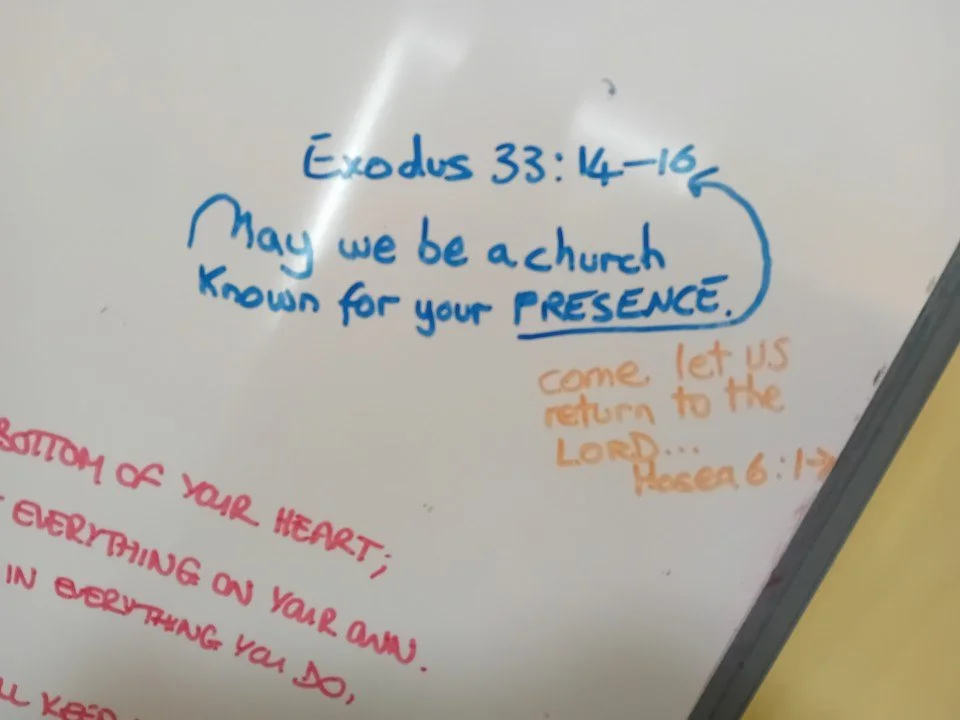 Exodus 33:14-16
May we be a church
known for your PRESENCE.
come let us
return to the
LORD...
Hosea 6:1→
BOTTOM OF YOUR HEART;
EVERYTHING ON YOUR OWN.
IN EVERYTHING YOU DO,
KEEP